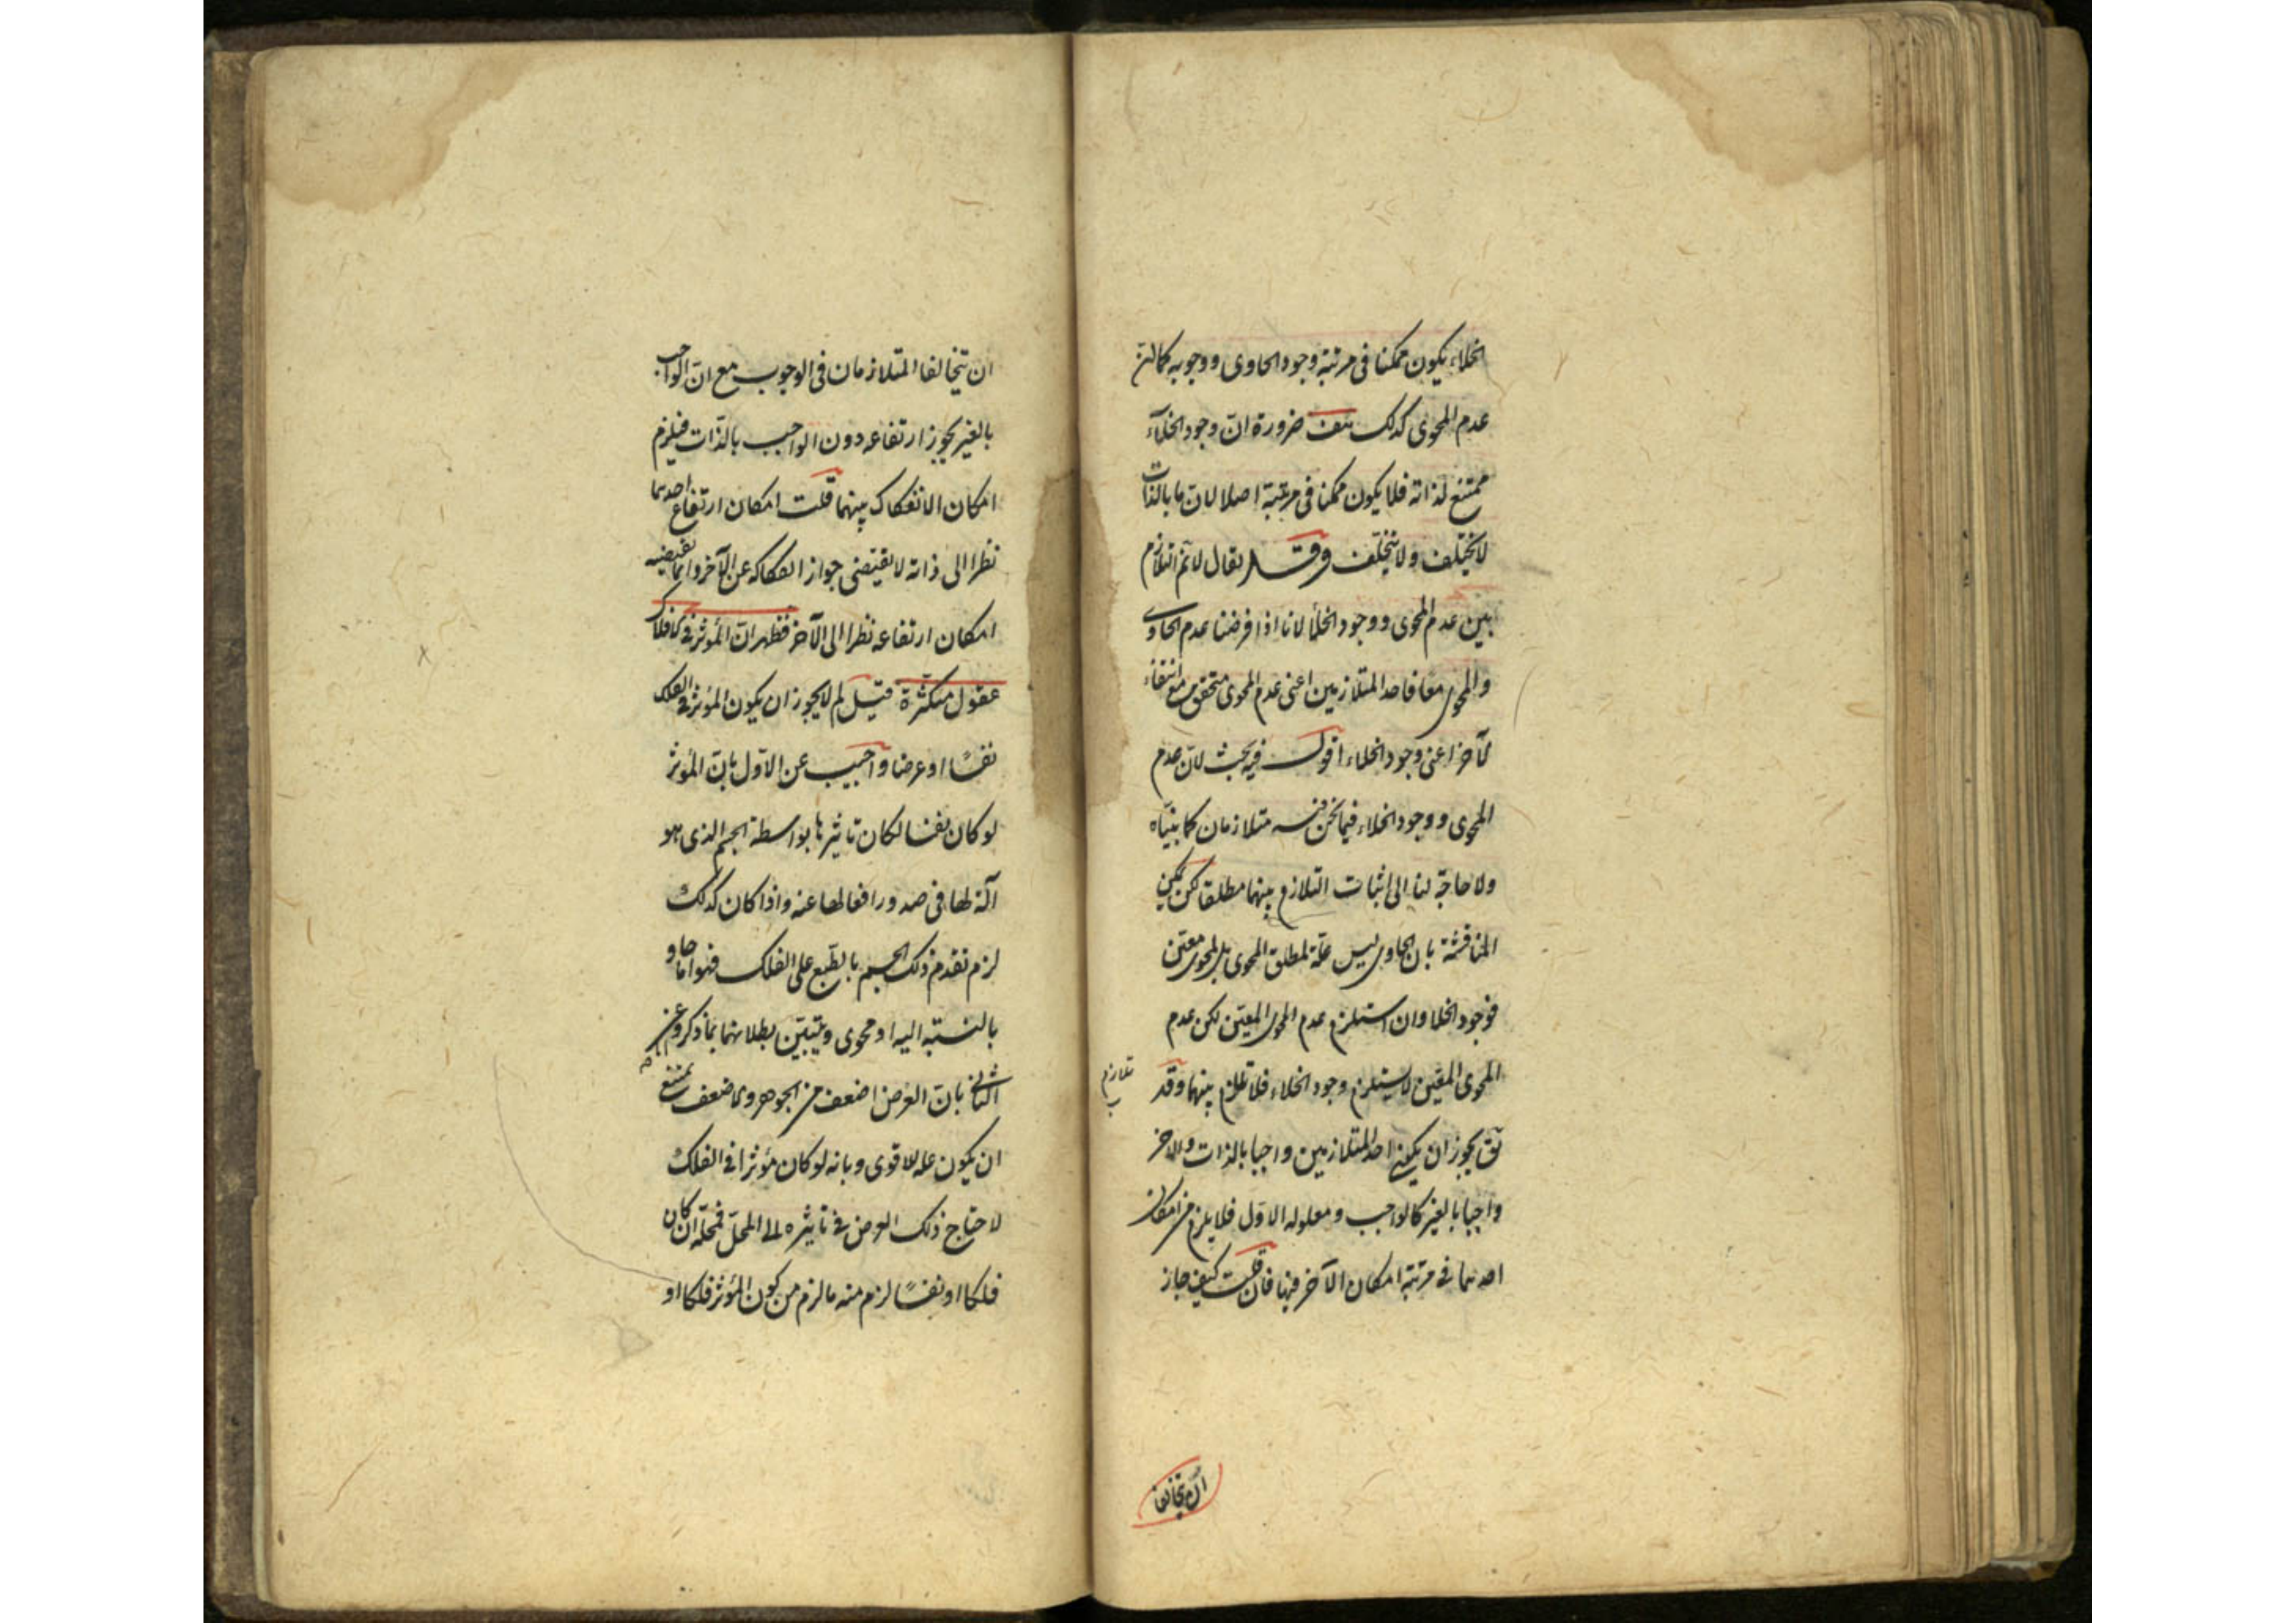 الخلاء يكون ممكنا فى مرتبة وجود الحاوى ووجوبه كما ان
عدم المحوى كذلك هف ضرورة ان وجود الخلآء
ممتنع لذاته فلا يكون ممكنا فى مرتبة اصلا لان ما بالذات
لا يختلف ولا يتخلف وقد يقال لا نم التلازم
بين عدم المحوى ووجود الخلأ لانا اذا فرضنا عدم الحاوى
والمحوى معا فاحد المتلازمين اعنى عدم المحوى متحقق مع انتفاء
الآخر اعنى وجود الخلاء اقول فيه بحث لان عدم
المحوى ووجود الخلاء فيما نحن فيه متلازمان كما بيناه
ولا حاجة لنا الى اثبات التلازم بينهما مطلقا لكن يمكن
المناقشة بان الحاوى ليس علة لمطلق المحوى بل لمحوى معين
فوجود الخلا وان استلزم عدم المحوى المعين لكن عدم
المحوى المعين لا يستلزم وجود الخلاء فلا تلازم بينهما وقد
تلازم
يق يجوز ان يكون احد المتلازمين واجبا بالذات والاخر
واجبا بالغير كالواجب ومعلوله الاول فلا يلزم من امكان
احدهما فى مرتبة امكان الآخر فيها فان قلت كيف جاز
ان يتخالفا
ان يتخالفا المتلازمان فى الوجوب مع ان الواجب
بالغير يجوز ارتفاعه دون الواجب بالذات فيلزم
امكان الانفكاك بينهما قلت امكان ارتفاع احدهما
نظرا الى ذاته لا يقتضى جواز انفكاكه عن الآخر وانما يقتضيه
امكان ارتفاعه نظرا الى الآخر فظهر ان المؤثر فى الافلاك
عقول متكثرة قيل لم لا يجوز ان يكون المؤثر فى الفلك
نفسًا او عرضا واجيب عن الاول بان المؤثر
لو كان نفسا لكان تاثيرها بواسطة الجسم الذى هو
آلة لها فى صدور افعالها عنه واذا كان كذلك
لزم تقدم ذلك الجسم بالطبع على الفلك فهو اما حاو
بالنسبة اليه او محوى ويتبين بطلانهما بما ذكر وعن
الثانى بان العرض اضعف من الجوهر والاضعف يمتنع
ان يكون علة للاقوى وبانه لو كان مؤثرا فى الفلك
لاحتاج ذلك العرض فى تاثيره الى المحل فمحله ان كان
فلكا او نفسًا لزم منه ما لزم من كون المؤثر فلكا او